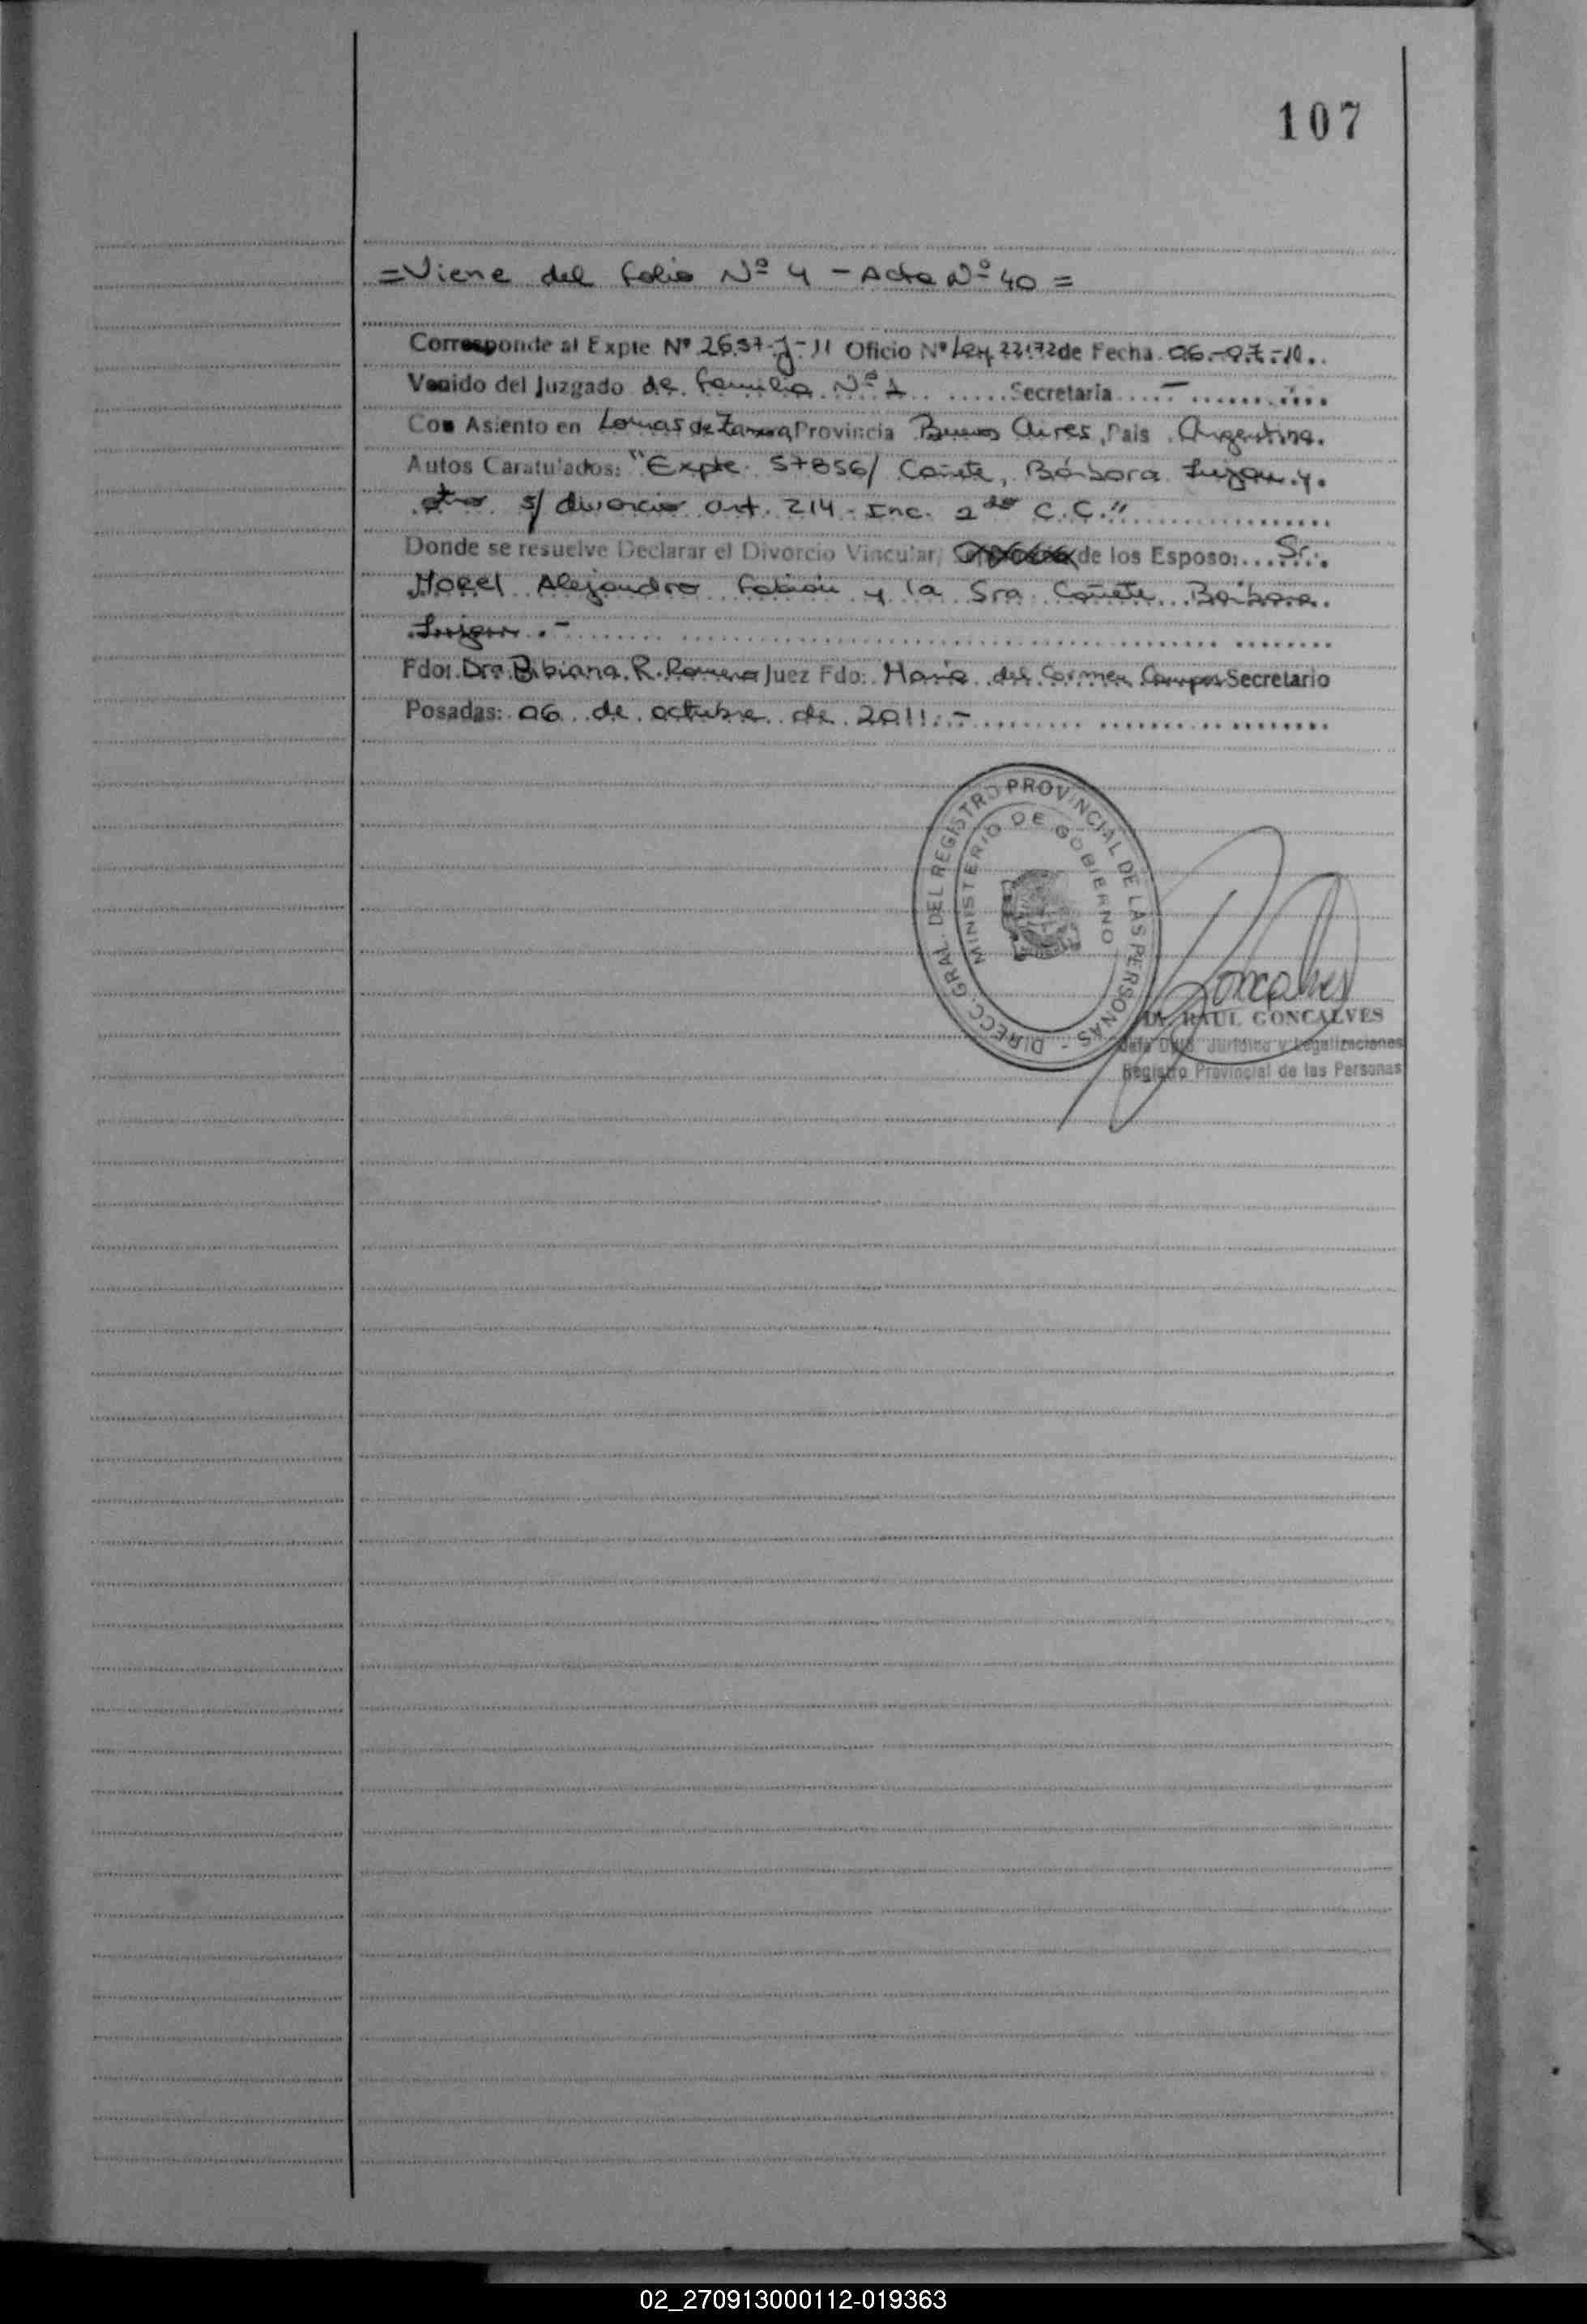 107
=Viene del folio Nº 4 - Acta Nº 40 =
Corresponde al Expte Nº 2637-J-11 Oficio Nº Ley 22172 de Fecha 06-07-10..
Venido del Juzgado de familia Nº 1 ......Secretaria.....-............
Con Asiento en Lomas de Zamora Provincia Buenos Aires, Pais Argentina.
Autos Caratulados: "Expte. 57856/ Cañete, Bárbara Lujan y.
otro s/ divorcio art. 214 - Inc. 2do C.C."
Donde se resuelve Declarar el Divorcio Vincular, de los Esposo:...Sr..
Morel Alejandro Fabián y la Sra Cañete Bárbara.
Lujan.-
Fdo: Dra. Bibiana R. Romero Juez Fdo: Maria del Carmen Campos Secretario
Posadas: 06 de octubre de 2011.-
DIRECC. GRAL. DEL REGISTRO PROVINCIAL DE LAS PERSONAS -
MINISTERIO DE GOBIERNO
Goncalves
Dr. RAUL GONCALVES
Jefe Dpto Jurídico y Legalizaciones
Registro Provincial de las Personas
02_270913000112-019363